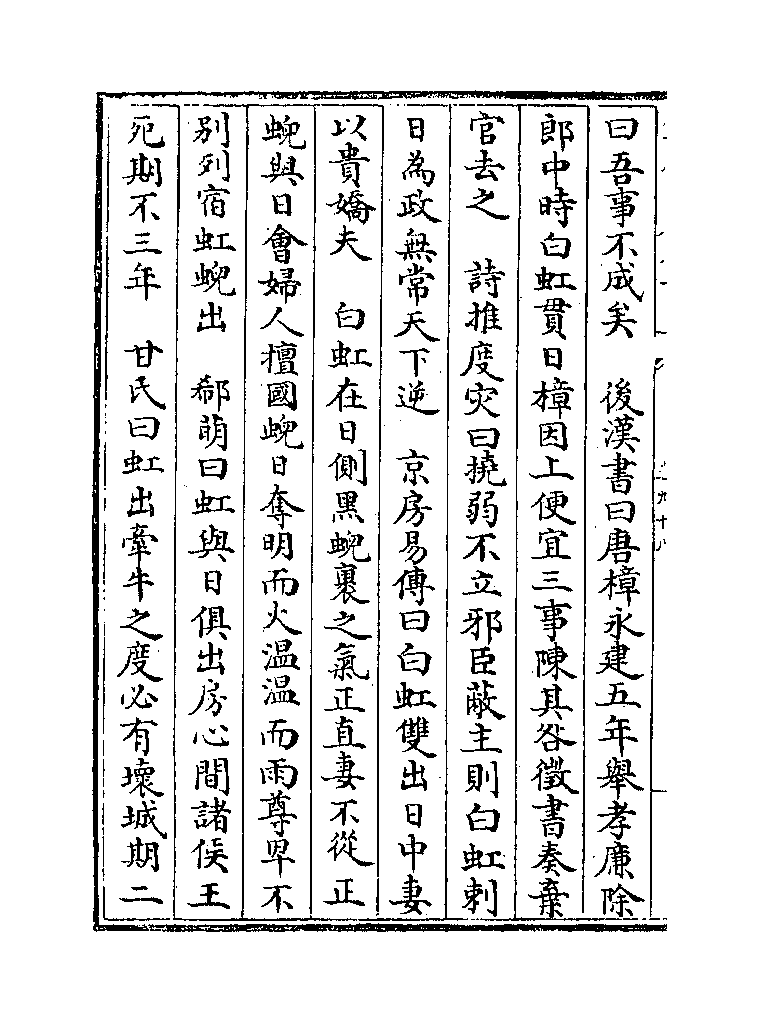 曰吾事不成矣　後漢書曰唐樟永建五年舉孝廉除
郎中時白虹貫日樟因上便宜三事陳其咎徵書奏棄
官去之　詩推度灾曰撓弱不立邪臣蔽主則白虹刺
日為政無常天下逆　京房易傳曰白虹雙出日中妻
以貴嬌夫　白虹在日側黑蜺裹之氣正直妻不從正
蜺與日會婦人擅國蜺日奪明而火溫溫而雨尊卑不
别列宿虹蜺出　郗萌曰虹與日俱出房心間諸侯王
死期不三年　甘氏曰虹出牽牛之度必有壞城期二